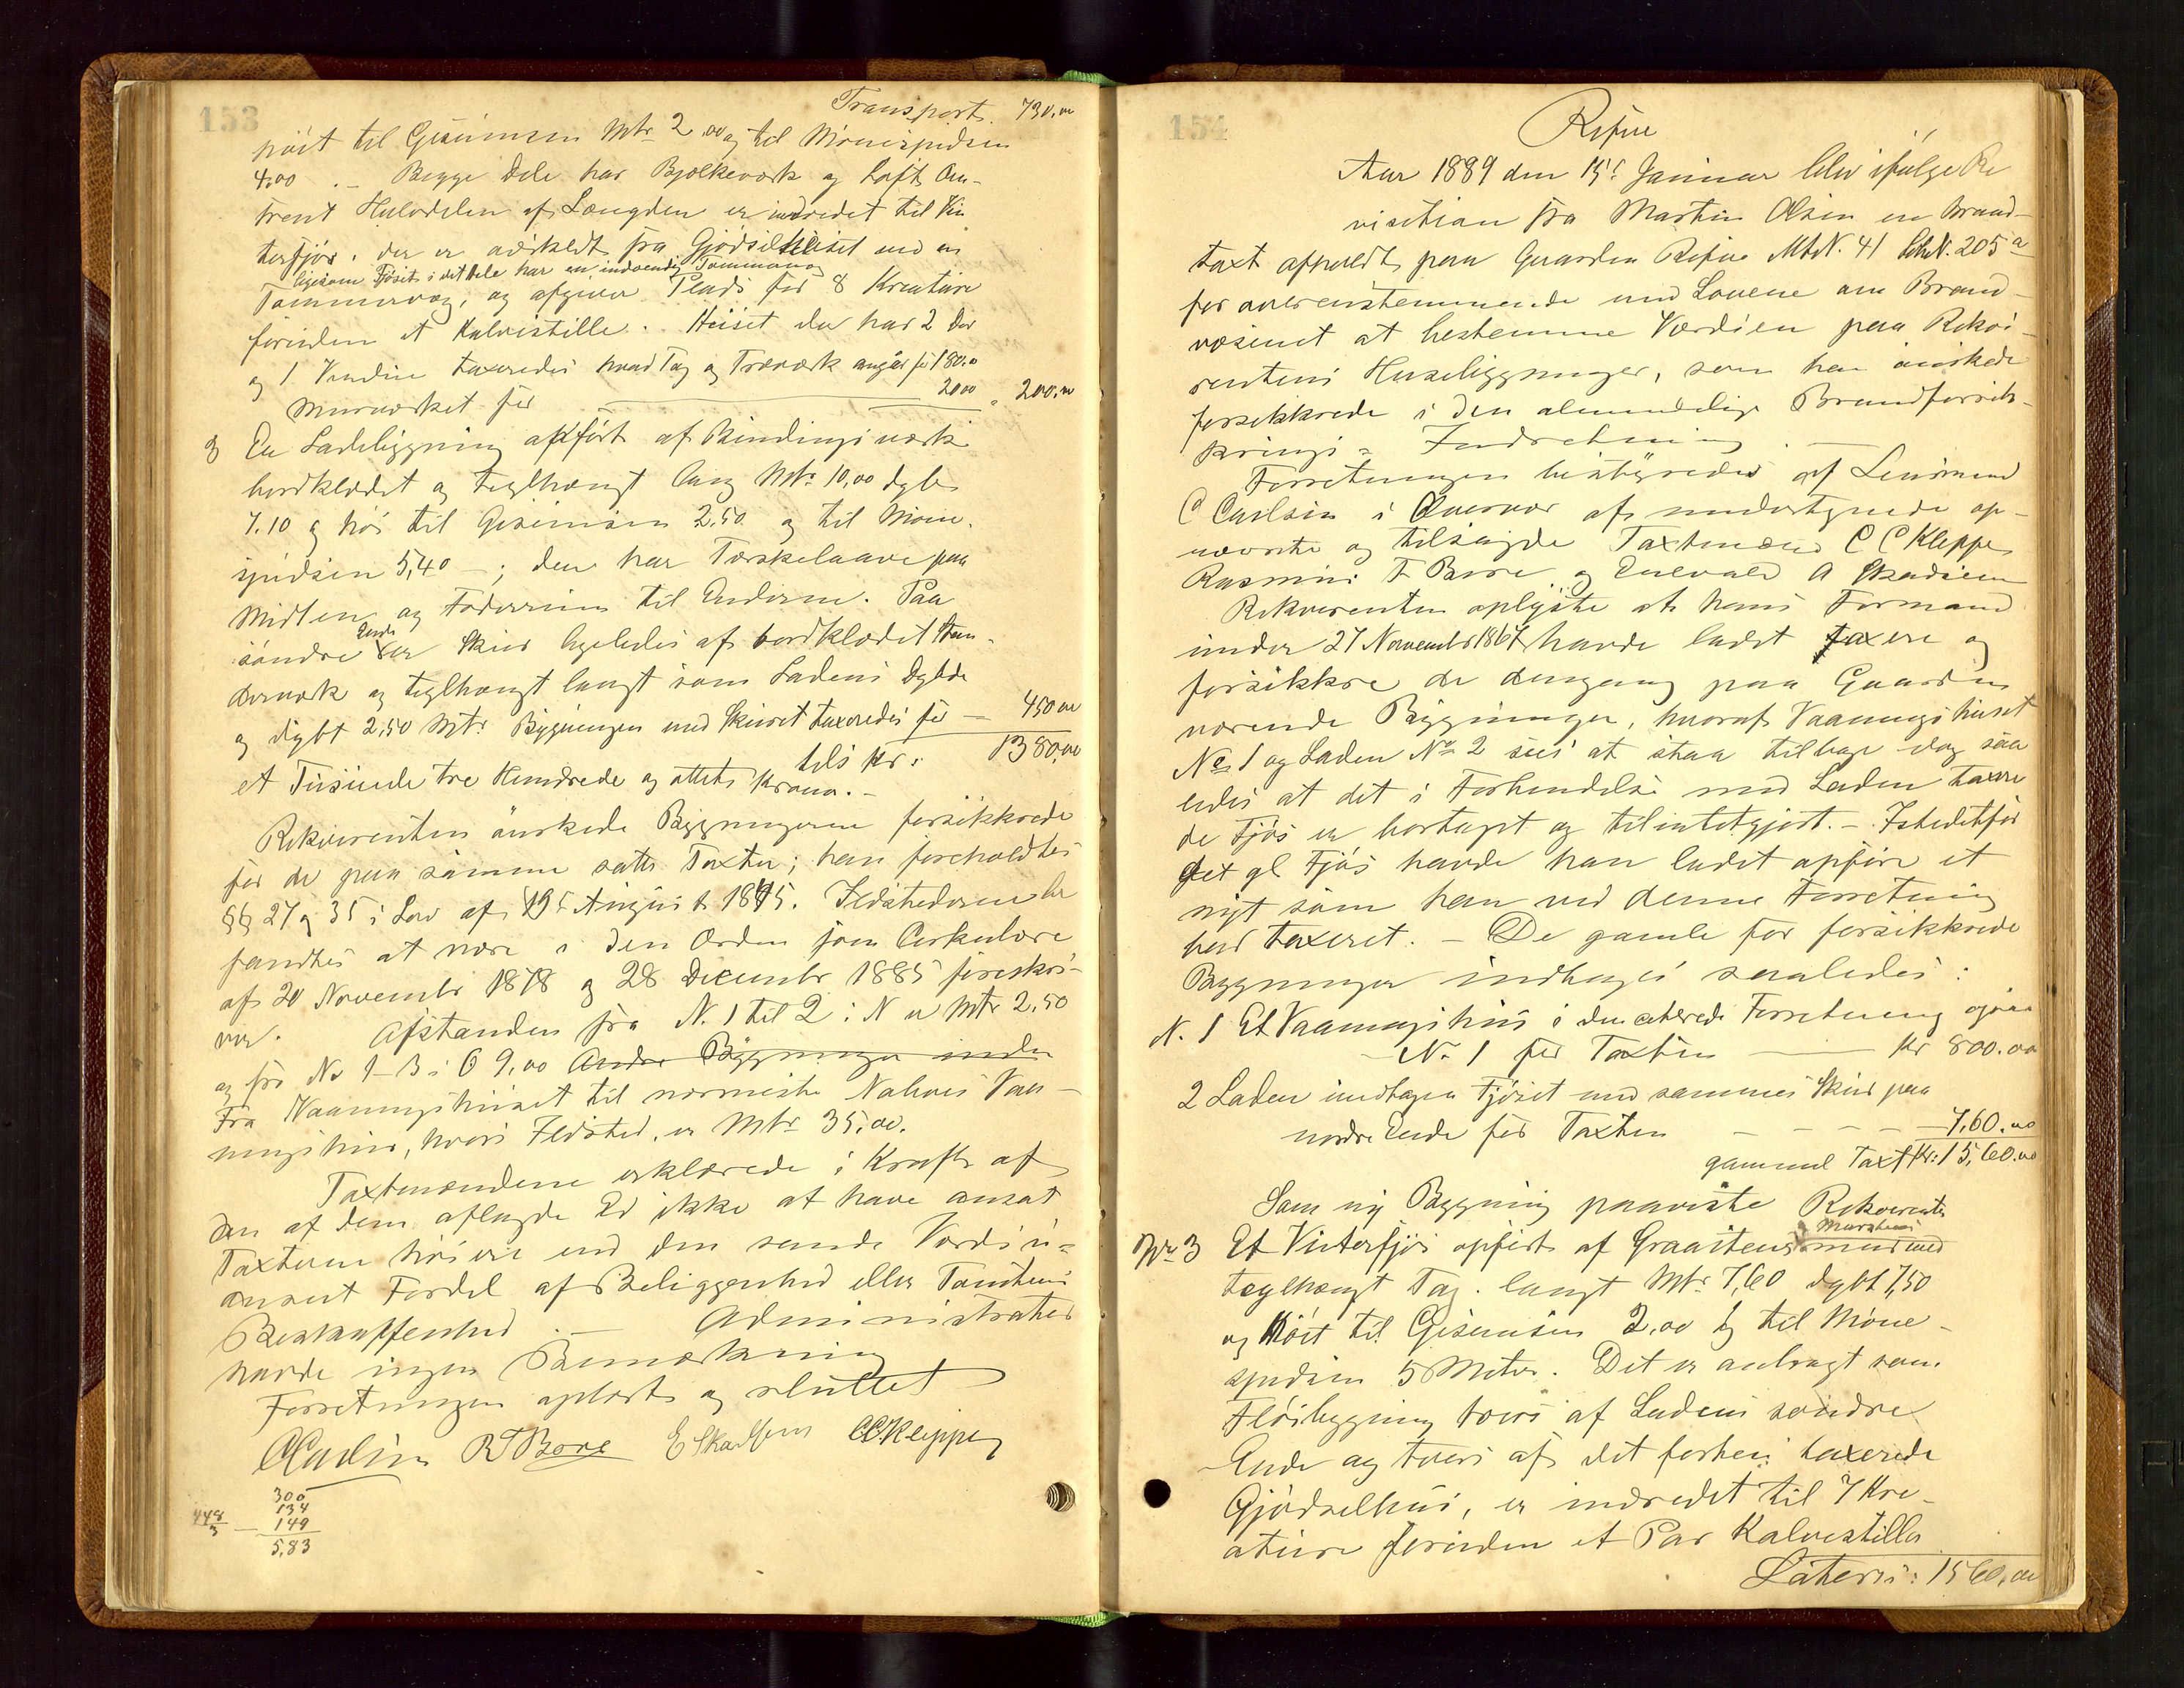 153
Transport. 730.00
høit til Gesimsen Mtr 2.00 og til Mønespidsen
4,00. – Begge Dele har Bjælkeværk og Loft. Om-
trent Halvdelen af Længden er indredet til Vin
terfjøs, der er adskildt fra Gjødselhuset med en
ligesom Fjøset i det hele har en indvendig Tømmervæg
Tømmervæg, og afgiver Plads for 8 Kreature
foruden et Kalvestille. Huset der har 2 Dør
og 1 Vindue taxeredes hvad Tag og Træværk angår for 180.0
Murværket for 20 00 = 200.00
3 En Ladebygning opført af Bindingsværk
bordklædt og teglhængt lang Mtr 10,00 dyb
7.10 og høi til Gesimsen 2.50 og til Møne-
spidsen 5,40 –; den har Tærskelaave paa
Midten og Foderrum til Enderne. Paa
søndre Ende er Skur ligeledes af bordklædt Sten-
derværk og teglhængt langt som Ladens Dybde
og dybt 2,50 Mtr. Bygningen med Skuret taxeredes for – 450 00
tils Kr: 1380,00
et Tusinde tre Hundrede og ottets Kroner. –
Rekvirenten ønskede Bygningerne forsikkrede
for de paa samme satte Taxter; han foreholdtes
§§ 27 og 35 i Lov af 19de August 1845. Ildstederne be
fandtes at være i den Orden som Cirkulære
af 20 November 1878 og 28 December 1885 foreskri-
ver. Afstanden fra N. 1 til 2 i N er Mtr 2,50
og fra No 1 – 3 i O 9,00 Andre Bygninger inden
Fra Vaaningshuset til nærmeste Nabos Vaa-
ningshus, hvori Ildsted, er Mtr 35,00.
Taxtmændene erklærede i Kraft af
den af dem aflagde Ed ikke at have ansat
Taxterne høiere end den sande Værdi u-
anseet Fordel af Beliggenhed eller Tomtens
Beskaffenhed. – Administrator
havde ingen Bemærkning
Forretningen oplæst og sluttet
CCarlsen R T Bore E Skadsem CCKleppe
300
134
448/3 – 149
5,83
154
Refve
Aar 1889 den 15de Januar blev ifølge Re
visition fra Martin Olsen en Brand-
taxt afholdt paa Gaarden Refve Mt N. 41 LbN. 205a
for overenstemmende med Lovene om Brand-
væsenet at bestemme Værdien paa Rekvi-
rentens Husebygninger, som han ønskede
forsikkrede i den almindelige Brandforsik-
krings = Indretning. –
Forretningen bestyredes af Lensmand
C Carlsen i Overvær af undertegnede op-
nævnte og tilsagde Taxtmænd C C Kleppe
Rasmus T Bore og Enevald A Skadsem
Rekvirenten oplyste at hans Formand
under 27 November 1867 havde ladet taxere og
forsikkre de dengang paa Gaarden
værende Bygninger, hvoraf Vaaningshuset
No 1 og Laden No 2 sees at staa tilbage dog saa
ledes at det i Forbindelse med Laden taxere
de Fjøs er bortaget og tilintetgjort. – Istedetfor
det gl Fjøs havde han ladet opføre et
nyt som han ved denne Forretning
bad taxeret. – De gamle før forsikkrede
Bygninger indtages saaledes:
N. 1 Et Vaaningshus i den citerede Forretning ogsaa
N. 1 for Taxten – Kr 800.00
2 Laden indtagen Fjøset med sammes Skur paa
nordre Ende for Taxten – – – – 7,60.00
gammel Taxt Kr: 15,60.00
Som ny Bygning paaviste Rekvirenten
Murstens
No 3 Et Vinterfjøs opført af Graastens mur med
teglhængt Tag. langt Mtr 7,60 dybt 7,50
og høit til Gesimsen 2,00 og til Møne-
spidsen 5 Meter. Det er anbragt som
Fløibygning tvers af Ladens søndre
Ende og tvers af det forhen taxerede
Gjødselhus, er indredet til 7 Kre-
ature foruden et Par Kalvestiller
Lateris: 1560,00